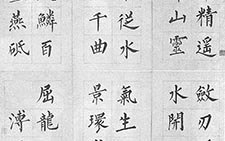 精遥
山靈
從水
千曲
鱗百
燕砥
斂刃
水開
氣生
景環
屈龍
溥